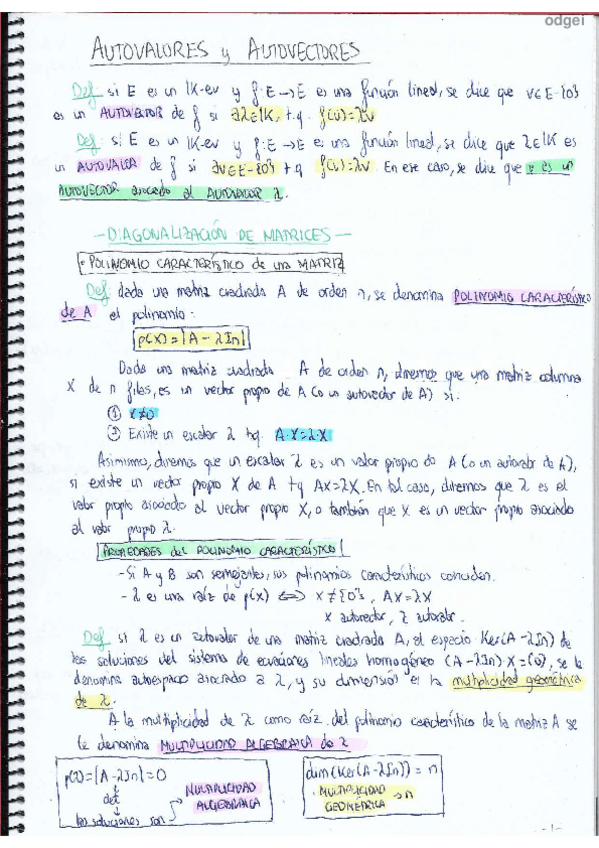 odgei
AUTOVALORES y AUTOVECTORES
Def si E es un IK-ev y f:E→E es una función lineal, se dice que v∈E-{0}
es un AUTOVECTOR de f si ∃λ∈IK, t.q. f(v)=λv
Def: si E es un IK-ev y f:E→E es una función lineal, se dice que λ∈IK es
un AUTOVALOR de f si ∃v∈E-{0} tq f(v)=λv. En ese caso, se dice que v es un
AUTOVECTOR asociado al AUTOVALOR λ.
- DIAGONALIZACIÓN DE MATRICES -
• POLINOMIO CARACTERÍSTICO de una MATRIZ
Def dada una matriz cuadrada A de orden n, se denomina POLINOMIO CARACTERÍSTICO
de A el polinomio:
p(x)=|A-λIn|
Dada una matriz cuadrada A de orden n, diremos que una matriz columna
X de n filas, es un vector propio de A (o un autovector de A) si:
① X≠0
② Existe un escalar λ tq. A·X=λ·X
Asimismo, diremos que un escalar λ es un valor propio de A (o un autovalor de A),
si existe un vector propio X de A tq AX=λX. En tal caso, diremos que λ es el
valor propio asociado al vector propio X, o también que X es un vector propio asociado
al valor propio λ.
PROPIEDADES del POLINOMIO CARACTERÍSTICO
- Si A y B son semejantes, sus polinomios característicos coinciden.
- λ es una raíz de p(x) ⟺ X≠{0}, AX=λX
X autovector, λ autovalor.
Def si λ es un autovalor de una matriz cuadrada A, el espacio Ker(A-λIn) de
las soluciones del sistema de ecuaciones lineales homogéneo (A-λIn)X=(0), se le
denomina autoespacio asociado a λ, y su dimensión es la multiplicidad geométrica
de λ.
A la multiplicidad de λ como raíz del polinomio característico de la matriz A se
le denomina MULTIPLICIDAD ALGEBRAICA de λ
p(λ)=|A-λIn|=0
det
las soluciones son → MULTIPLICIDAD
ALGEBRAICA
dim(Ker(A-λIn)) = n
MULTIPLICIDAD
GEOMÉTRICA → n